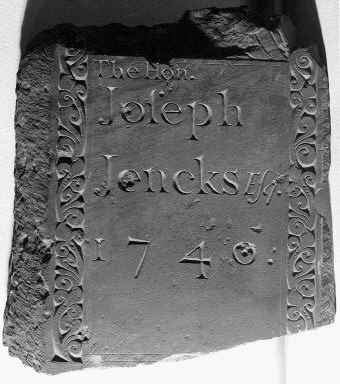 The Hon.
Joſeph
Jencks Eſq.
1740: